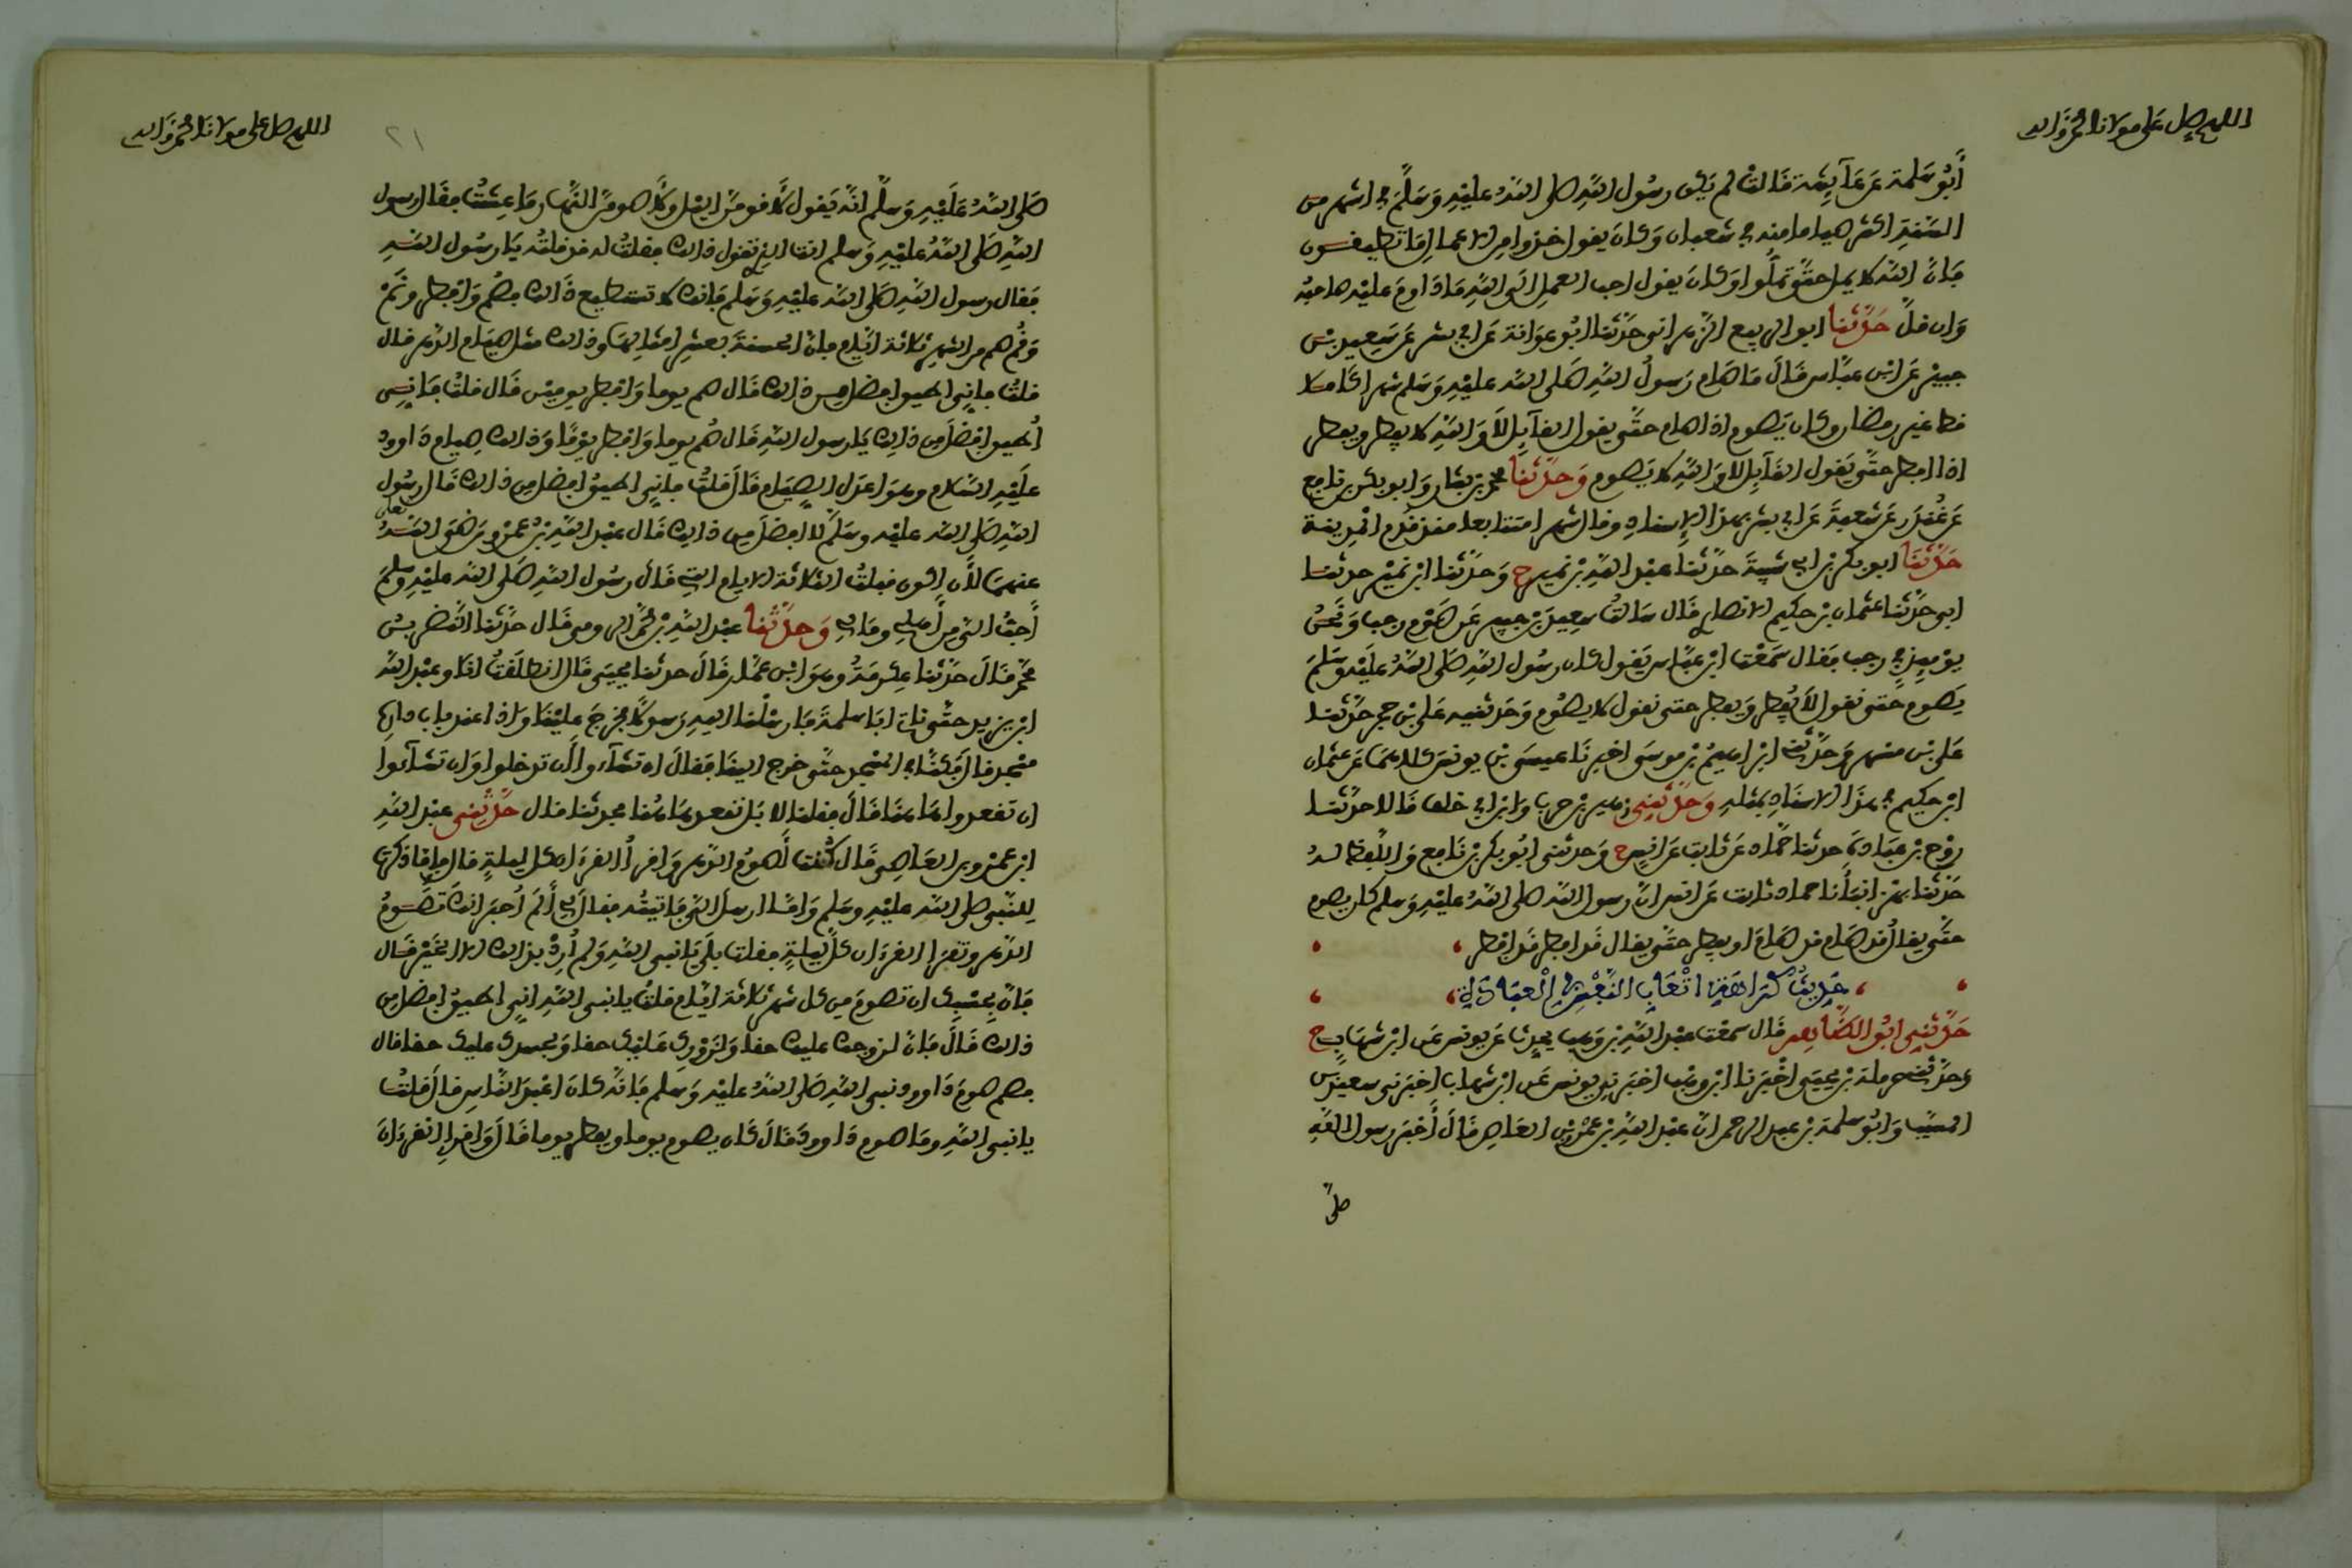 اللهم صل على مولانا محمد وآله
أبو سلمة عن عآيشة قالت لم يكن رسول الله صلى الله عليه وسلم في الشهر من
السنة اكثر صياما منه في شعبان وكان يقول خذوا من الاعمال ما تطيقون
فان الله لا يمل حتى تملوا وكان يقول احب العمل الى الله ما داوم عليه صاحبه
وان قل حدثنا ابو الربيع الزهراني حدثنا ابو عوانة عن ابي بشر عن سعيد بن
جبير عن ابن عباس قال ما صام رسول الله صلى الله عليه وسلم شهرا كاملا
قط غير رمضان وكان يصوم اذا صام حتى يقول القآيل لا والله لا يفطر ويفطر
اذا افطر حتى يقول القآيل لا والله لا يصوم وحدثنا محمد بن بشار وابو بكر بن نافع
عن غندر عن شعبة عن ابي بشر بهذا الاسناد وقال شهرا متتابعا منذ قدم المدينة
حدثنا ابو بكر بن ابي شيبة حدثنا عبد الله بن نمير ح وحدثنا ابن نمير حدثنا
ابي حدثنا عثمان بن حكيم الانصاري قال سالت سعيد بن جبير عن صوم رجب ونحن
يوميذ في رجب فقال سمعت ابن عباس يقول كان رسول الله صلى الله عليه وسلم
يصوم حتى نقول لا يفطر ويفطر حتى نقول لا يصوم وحدثنيه علي بن حجر حدثنا
علي بن مسهر ح وحدثني ابراهيم بن موسى اخبرنا عيسى بن يونس كلاهما عن عثمان
ابن حكيم في هذا الاسناد بمثله وحدثني زهير بن حرب وابن ابي خلف قالا حدثنا
روح بن عبادة حدثنا حماد عن ثابت عن انس ح وحدثني ابو بكر بن نافع واللفظ له
حدثنا بهز انبأنا حماد ثابت عن انس ان رسول الله صلى الله عليه وسلم كان يصوم
حتى يقال قد صام قد صام ويفطر حتى يقال قد افطر قد افطر
حديث كراهية اتعاب النفس في العبادة
حدثني ابو الطاهر قال سمعت عبد الله بن وهب يحدث عن يونس عن ابن شهاب ح
وحدثني حرملة بن يحيى اخبرنا ابن وهب اخبرني يونس عن ابن شهاب اخبرني سعيد بن
المسيب وابو سلمة بن عبد الرحمن ان عبد الله بن عمرو بن العاص قال أخبر رسول الله
صلى
اللهم صل على مولانا محمد وآله
٢١
صلى الله عليه وسلم انه يقول لأقومن الليل ولأصومن النهار ما عشت فقال رسول
الله صلى الله عليه وسلم انت الذي تقول ذالك فقلت له قد قلته يا رسول الله
فقال رسول الله صلى الله عليه وسلم فانك لا تستطيع ذالك فصم وافطر ونم
وقم صم من الشهر ثلاثة ايام فان الحسنة بعشر امثالها وذالك مثل صيام الدهر قال
قلت فاني اطيق افضل من ذالك قال صم يوما وافطر يومين قال قلت فاني
أطيق افضل من ذالك يا رسول الله قال صم يوما وافطر يوما وذالك صيام داوود
عليه السلام وهو اعدل الصيام قال قلت فاني اطيق افضل من ذالك قال رسول
الله صلى الله عليه وسلم لا افضل من ذالك قال عبد الله بن عمرو رضي الله تعلى
عنهما لأن اكون قبلت الثلاثة الايام التي قال رسول الله صلى الله عليه وسلم
أحب الي من أهلي ومالي وحدثنا عبد الله بن محمد الرومي قال حدثنا النضر بن
محمد قال حدثنا عكرمة وهو ابن عمار قال حدثنا يحيى قال انطلقت انا وعبد الله
ابن يزيد حتى ناتي ابا سلمة فارسلنا اليه رسولا فخرج علينا واذا عند باب داره
مسجد قال فكنا في المسجد حتى خرج الينا فقال ان تشآءوا أن تدخلوا وان تشآءوا
ان تقعدوا هاهنا قال فقلنا لا بل نقعد هاهنا فحدثنا قال حدثني عبد الله
ابن عمرو بن العاصي قال كنت أصوم الدهر واقرأ القرءان كل ليلة قال فاما ذكرت
للنبي صلى الله عليه وسلم واما ارسل الي فاتيته فقال لي ألم أخبر انك تصوم
الدهر وتقرا القرءان كل ليلة فقلت بلى يا نبي الله ولم أرد بذالك الا الخير قال
فان بحسبك ان تصوم من كل شهر ثلاثة ايام قلت يا نبي الله اني اطيق افضل من
ذالك قال فان لزوجك عليك حقا ولزورك عليك حقا ولجسدك عليك حقا قال
فصم صوم داوود نبي الله صلى الله عليه وسلم فانه كان اعبد الناس قال قلت
يا نبي الله وما صوم داوود قال كان يصوم يوما ويفطر يوما قال واقرإ القرءان